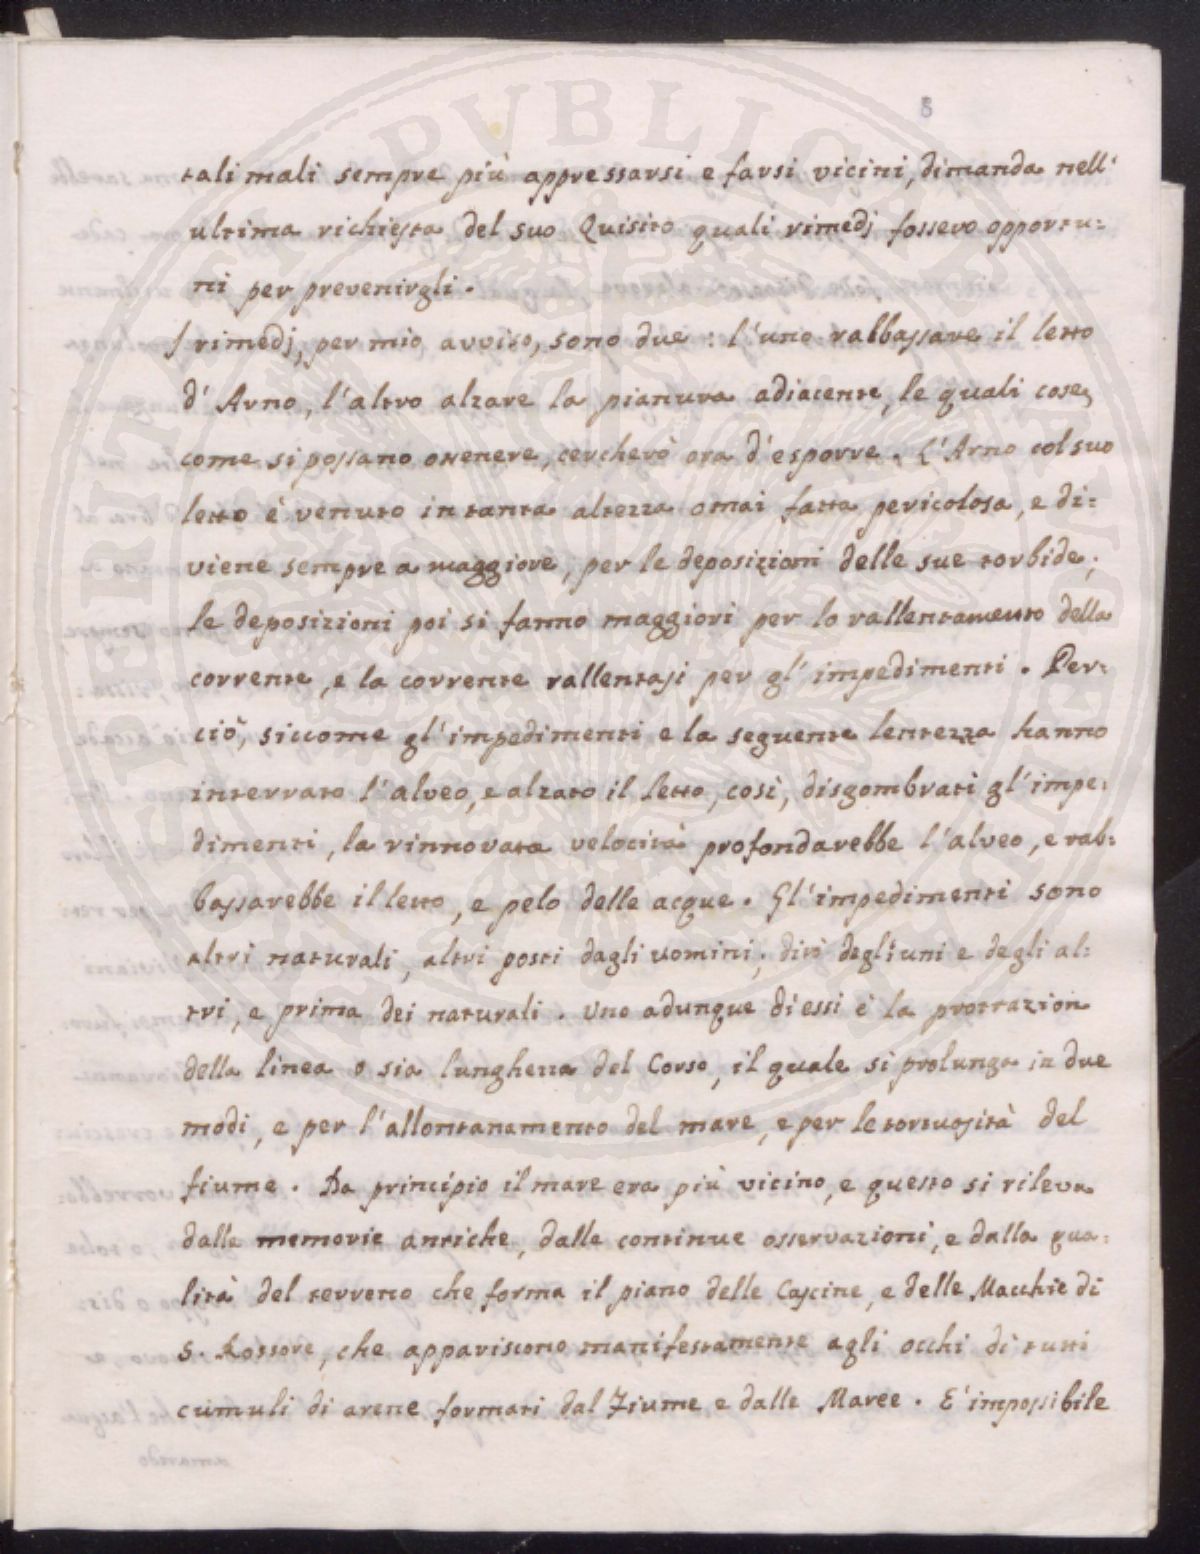 8
tali mali sempre più appressarsi e farsi vicini, dimanda nell'
ultima richiesta del suo Quisito quali rimedj fossero opportu:
ni per prevenirgli.
I rimedj, per mio avviso, sono due: l'uno rabbassare il letto
d'Arno, l'altro alzare la pianura adiacente, le quali cose,
come si possano ottenere, cercherò ora d'esporre. L'Arno col suo
letto è venuto in tanta altezza omai fatta pericolosa, e di:
viene sempre a maggiore, per le deposizioni delle sue torbide;
le deposizioni poi si fanno maggiori per lo rallentamento della
corrente, e la corrente rallentasi per gl'impedimenti. Per:
ciò, siccome gl'impedimenti e la seguente lentezza hanno
interrato l'alveo, e alzato il letto, così, disgombrati gl'impe:
dimenti, la rinnovata velocità profondarebbe l'alveo, e rab:
bassarebbe il letto, e pelo delle acque. Gl'impedimenti sono
altri naturali, altri posti dagli uomini; dirò degli uni e degli al:
tri, e prima dei naturali. Uno adunque di essi è la protrazion
della linea o sia lunghezza del Corso, il quale si prolunga in due
modi, e per l'allontanamento del mare, e per le tortuosità del
fiume. Da principio il mare era più vicino, e questo si rileva
dalle memorie antiche, dalle continue osservazioni, e dalla qua:
lità del terreno che forma il piano delle Cascine, e delle Macchie di
S. Rossore, che appariscono manifestamente agli occhi di tutti
cumuli di arene formati dal Fiume e dalle Maree. E' impossibile
PUBLICAE